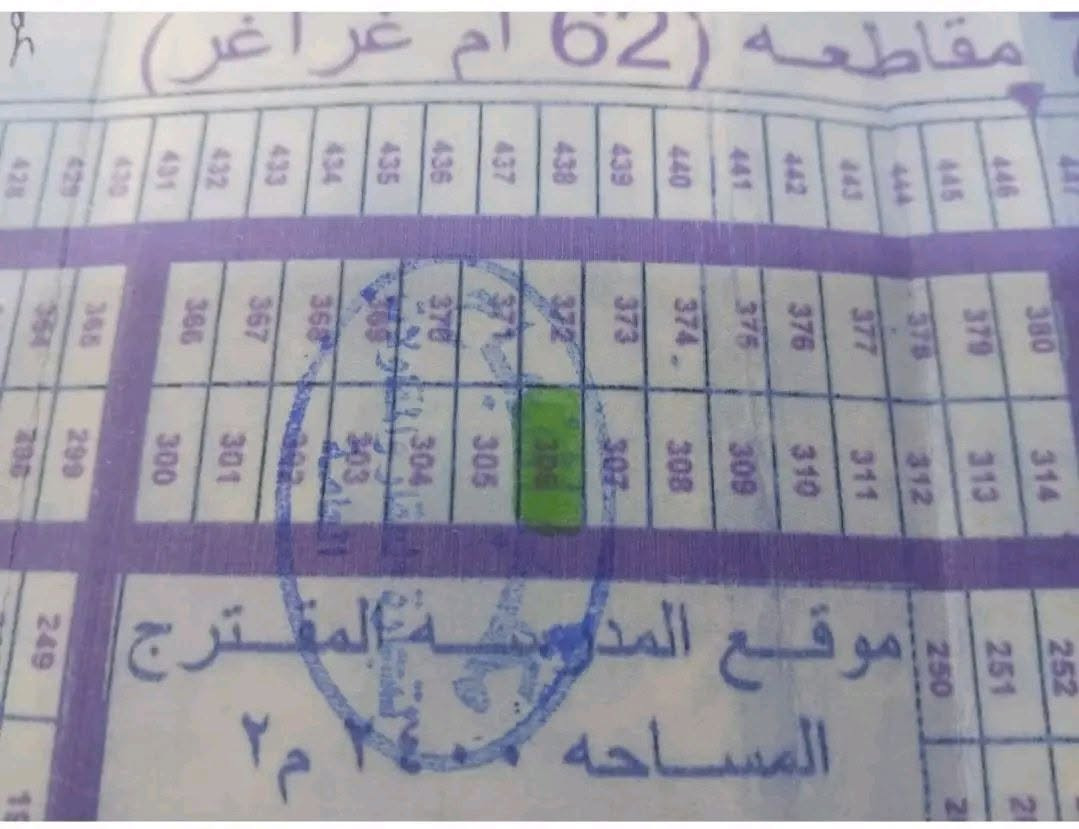 مقاطعه (62 ام غراغر)
428 429 430 431 432 433 434 435 436 437 438 439 440 441 442 443 444 445 446 447
364 365 366 367 368 369 370 371 372 373 374 375 376 377 378 379 380
298 299 300 301 302 303 304 305 306 307 308 309 310 311 312 313 314
249 موقع المدرسه المقترج 250 251 252
المساحه ٢٤٠٠ م٢